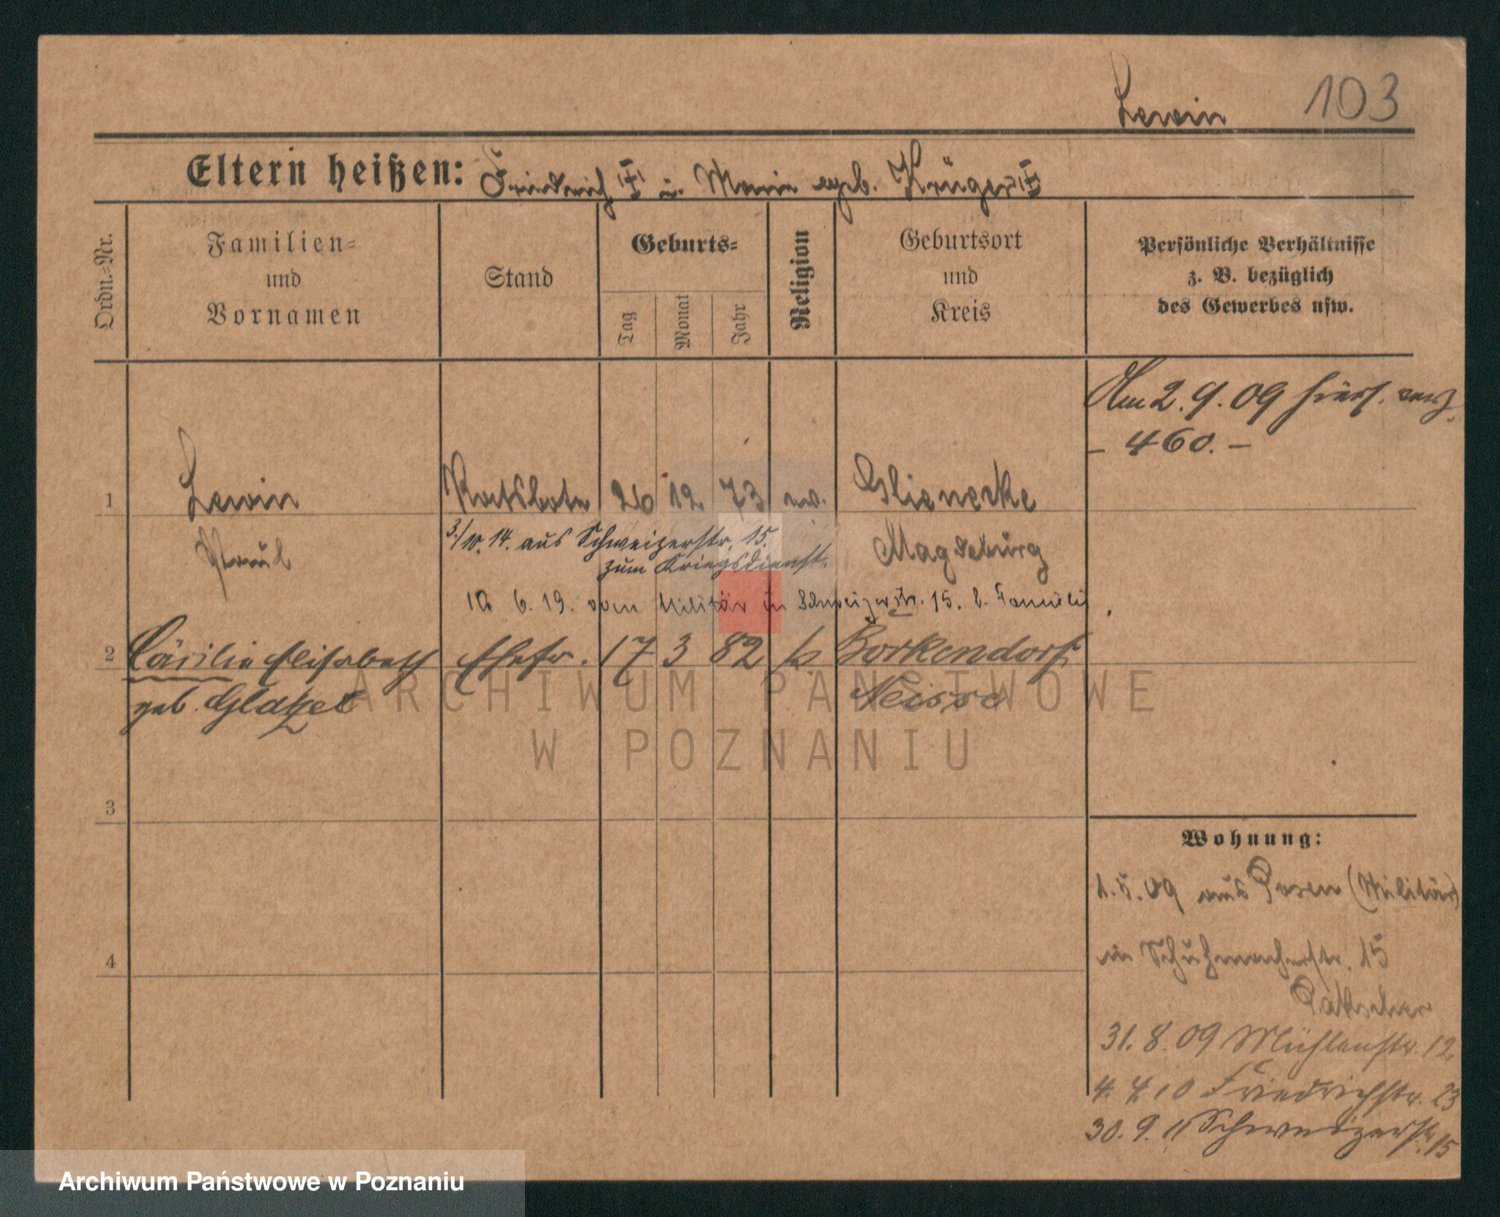 Lewin 103
Eltern heißen: Friedrich u. Marie geb. Krüger
Ordn.=Nr.
Familien=
und
Vornamen
Stand
Geburts=
Tag
Monat
Jahr
Religion
Geburtsort
und
Kreis
Persönliche Verhältnisse
z. B. bezüglich
des Gewerbes usw.
Am 2. 9. 09
– 460. –
1 Lewin Ratsbote 26 12 73 ev. Glienecke
3./10. 14. aus Schweizerstr. 15.
zum Kriegsdienst.
Paul Magdeburg
6. 19. vom Militär in Schweizerstr. 15. b. Familie
2 Cäcilie Elisabeth Ehefr. 17 3 82 Borkendorf
geb. Glatzel Neisse
3
4
Wohnung:
1. 5. 09 aus Posen (Militär)
in Schuhmacherstr. 15
31. 8. 09 Mühlenstr. 12
4. 4. 10 Friedrichstr. 23
30. 9. 11 Schweizerstr. 15
ARCHIWUM PAŃSTWOWE
W POZNANIU
Archiwum Państwowe w Poznaniu